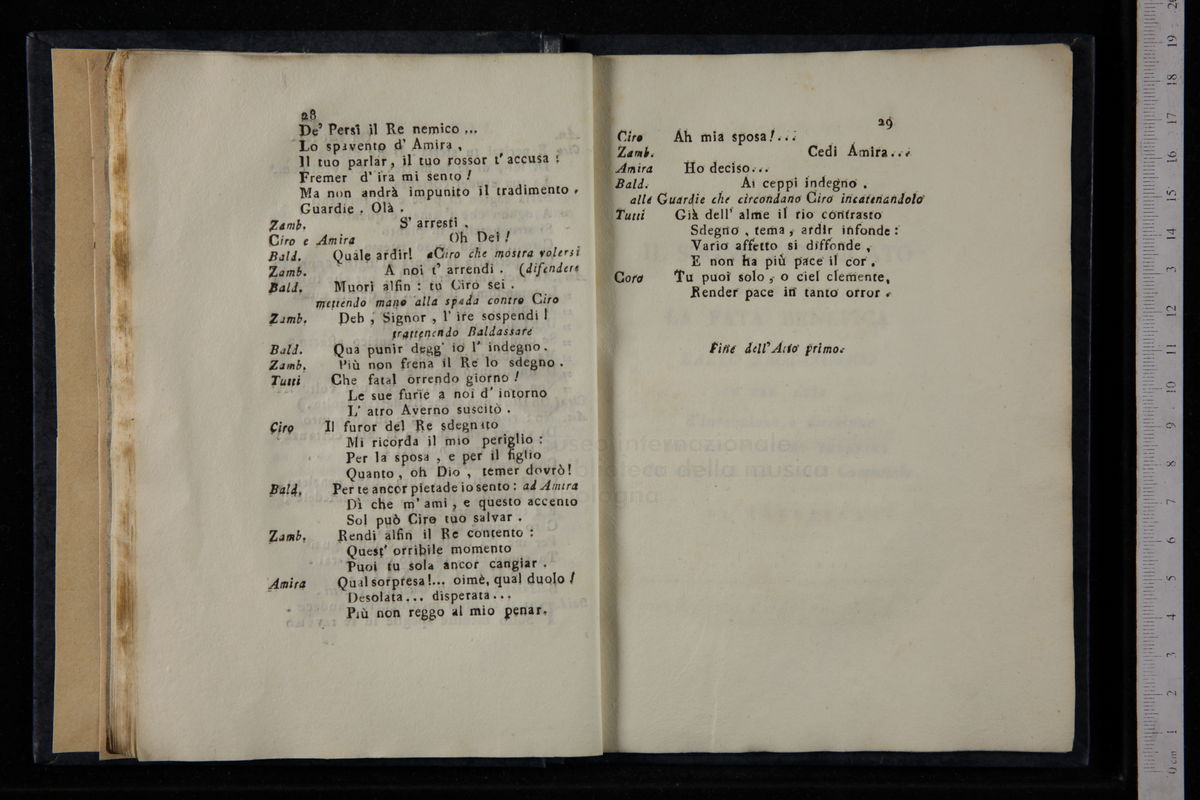 28
De' Persi il Re nemico ...
Lo spavento d' Amira ,
Il tuo parlar, il tuo rossor t' accusa :
Fremer d' ira mi sento !
Ma non andrà impunito il tradimento .
Guardie . Olà .
Zamb. S' arresti .
Ciro e Amira Oh Dei !
Bald. Quale ardir! a Ciro che mostra volersi
Zamb. A noi t' arrendi . (difendere
Bald. Muori alfin : tu Ciro sei .
mettendo mano alla spada contro Ciro
Zamb. Deh , Signor , l' ire sospendi !
trattenendo Baldassare
Bald. Qua punir degg' io l' indegno .
Zamb. Più non frena il Re lo sdegno .
Tutti Che fatal orrendo giorno !
Le sue furie a noi d' intorno
L' atro Averno suscitò .
Ciro Il furor del Re sdegnato
Mi ricorda il mio periglio :
Per la sposa , e per il figlio
Quanto , oh Dio , temer dovrò !
Bald. Per te ancor pietade io sento : ad Amira
Dì che m' ami , e questo accento
Sol può Ciro tuo salvar .
Zamb. Rendi alfin il Re contento :
Quest' orribile momento
Puoi tu sola ancor cangiar .
Amira Qual sorpresa !... oimè, qual duolo !
Desolata ... disperata ...
Più non reggo al mio penar.
29
Ciro Ah mia sposa ! ...
Zamb. Cedi Amira ...
Amira Ho deciso ...
Bald. Ai ceppi indegno .
alle Guardie che circondano Ciro incatenandolo
Tutti Già dell' alme il rio contrasto
Sdegno , tema , ardir infonde :
Vario affetto si diffonde ,
E non ha più pace il cor .
Coro Tu puoi solo , o ciel clemente,
Render pace in tanto orror .
Fine dell' Atto primo.
museo internazionale
biblioteca della musica
bologna
0 cm 1 2 3 4 5 6 7 8 9 10 11 12 13 14 15 16 17 18 19 20